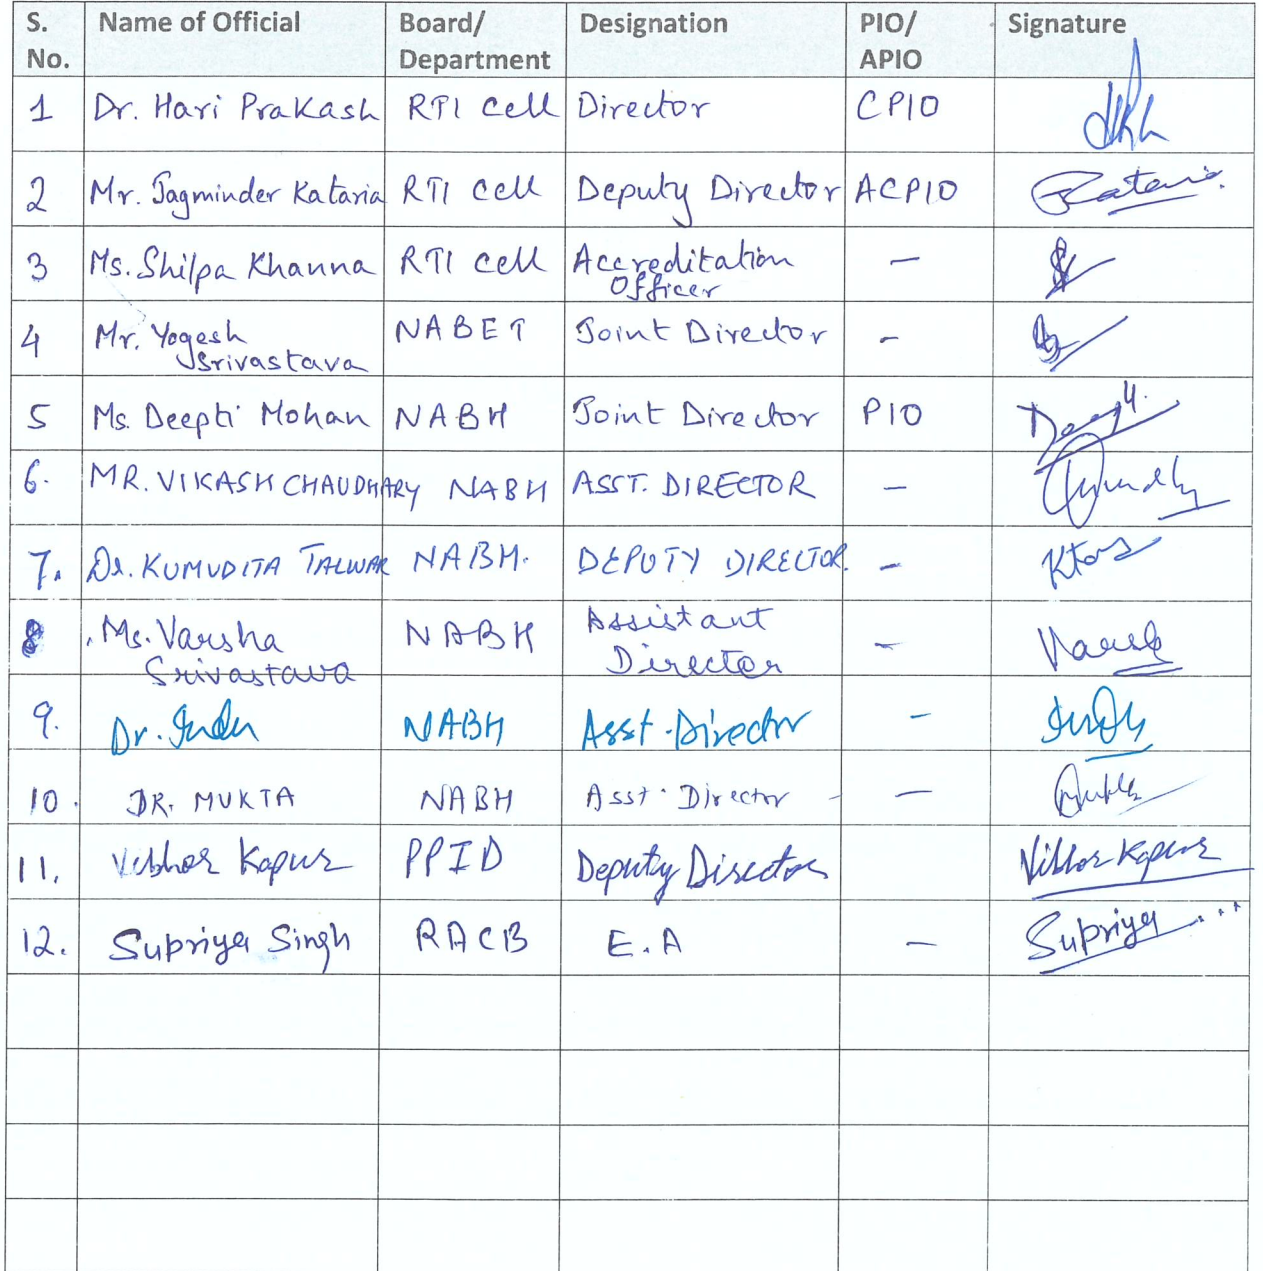 S. No. Name of Official Board/ Department Designation PIO/ APIO Signature
1 Dr. Hari Prakash RTI cell Director CPIO
2 Mr. Jagminder Kataria RTI cell Deputy Director ACPIO Kataria
3 Ms. Shilpa Khanna RTI cell Accreditation Officer –
4 Mr. Yogesh Srivastava NABET Joint Director –
5 Ms. Deepti Mohan NABH Joint Director PIO
6. MR. VIKASH CHAUDHARY NABH ASST. DIRECTOR –
7. Dr. KUMUDITA TALWAR NABH. DEPUTY DIRECTOR. –
8 Ms. Varsha Srivastava NABH Assistant Director – Varsha
9. Dr. Indu NABH Asst. Director – Indu
10. DR. MUKTA NABH Asst. Director – – Mukta
11. Vibhor Kapur PPID Deputy Director Vibhor Kapur
12. Supriya Singh RACB E.A – Supriya...